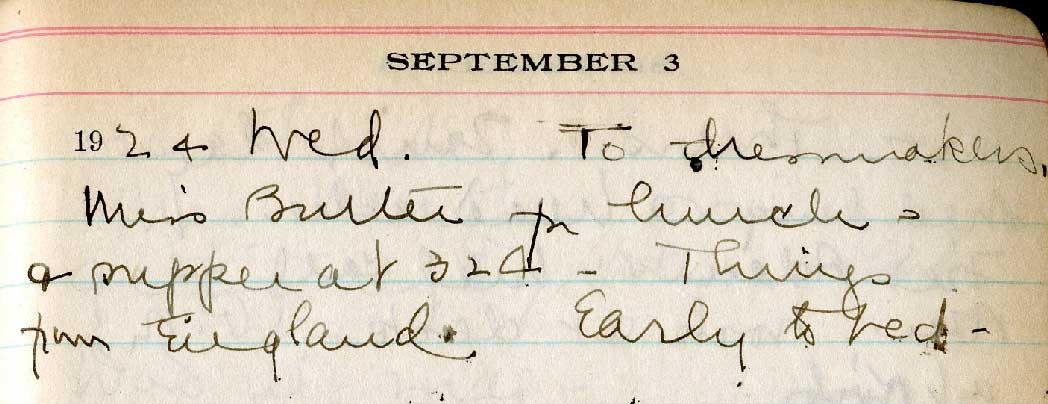 SEPTEMBER 3
1924 Wed. To dressmakers.
Miss for lunch -
& supper at 324 - Things
from England. Early to bed -